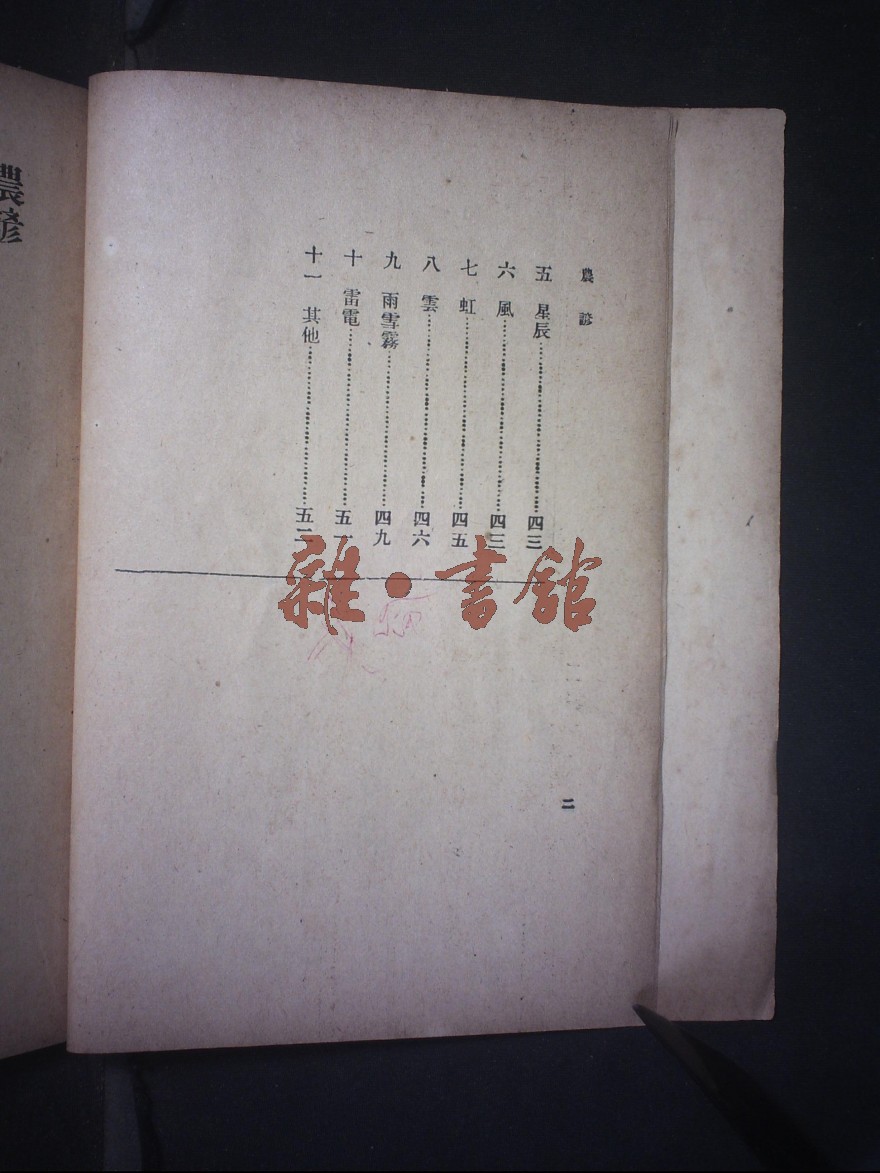 農諺
五 星辰……四三
六 風……四三
七 虹……四五
八 雲……四六
九 雨雪霧……四九
十 雷電……五一
十一 其他……五二
二
農諺
雜·書館